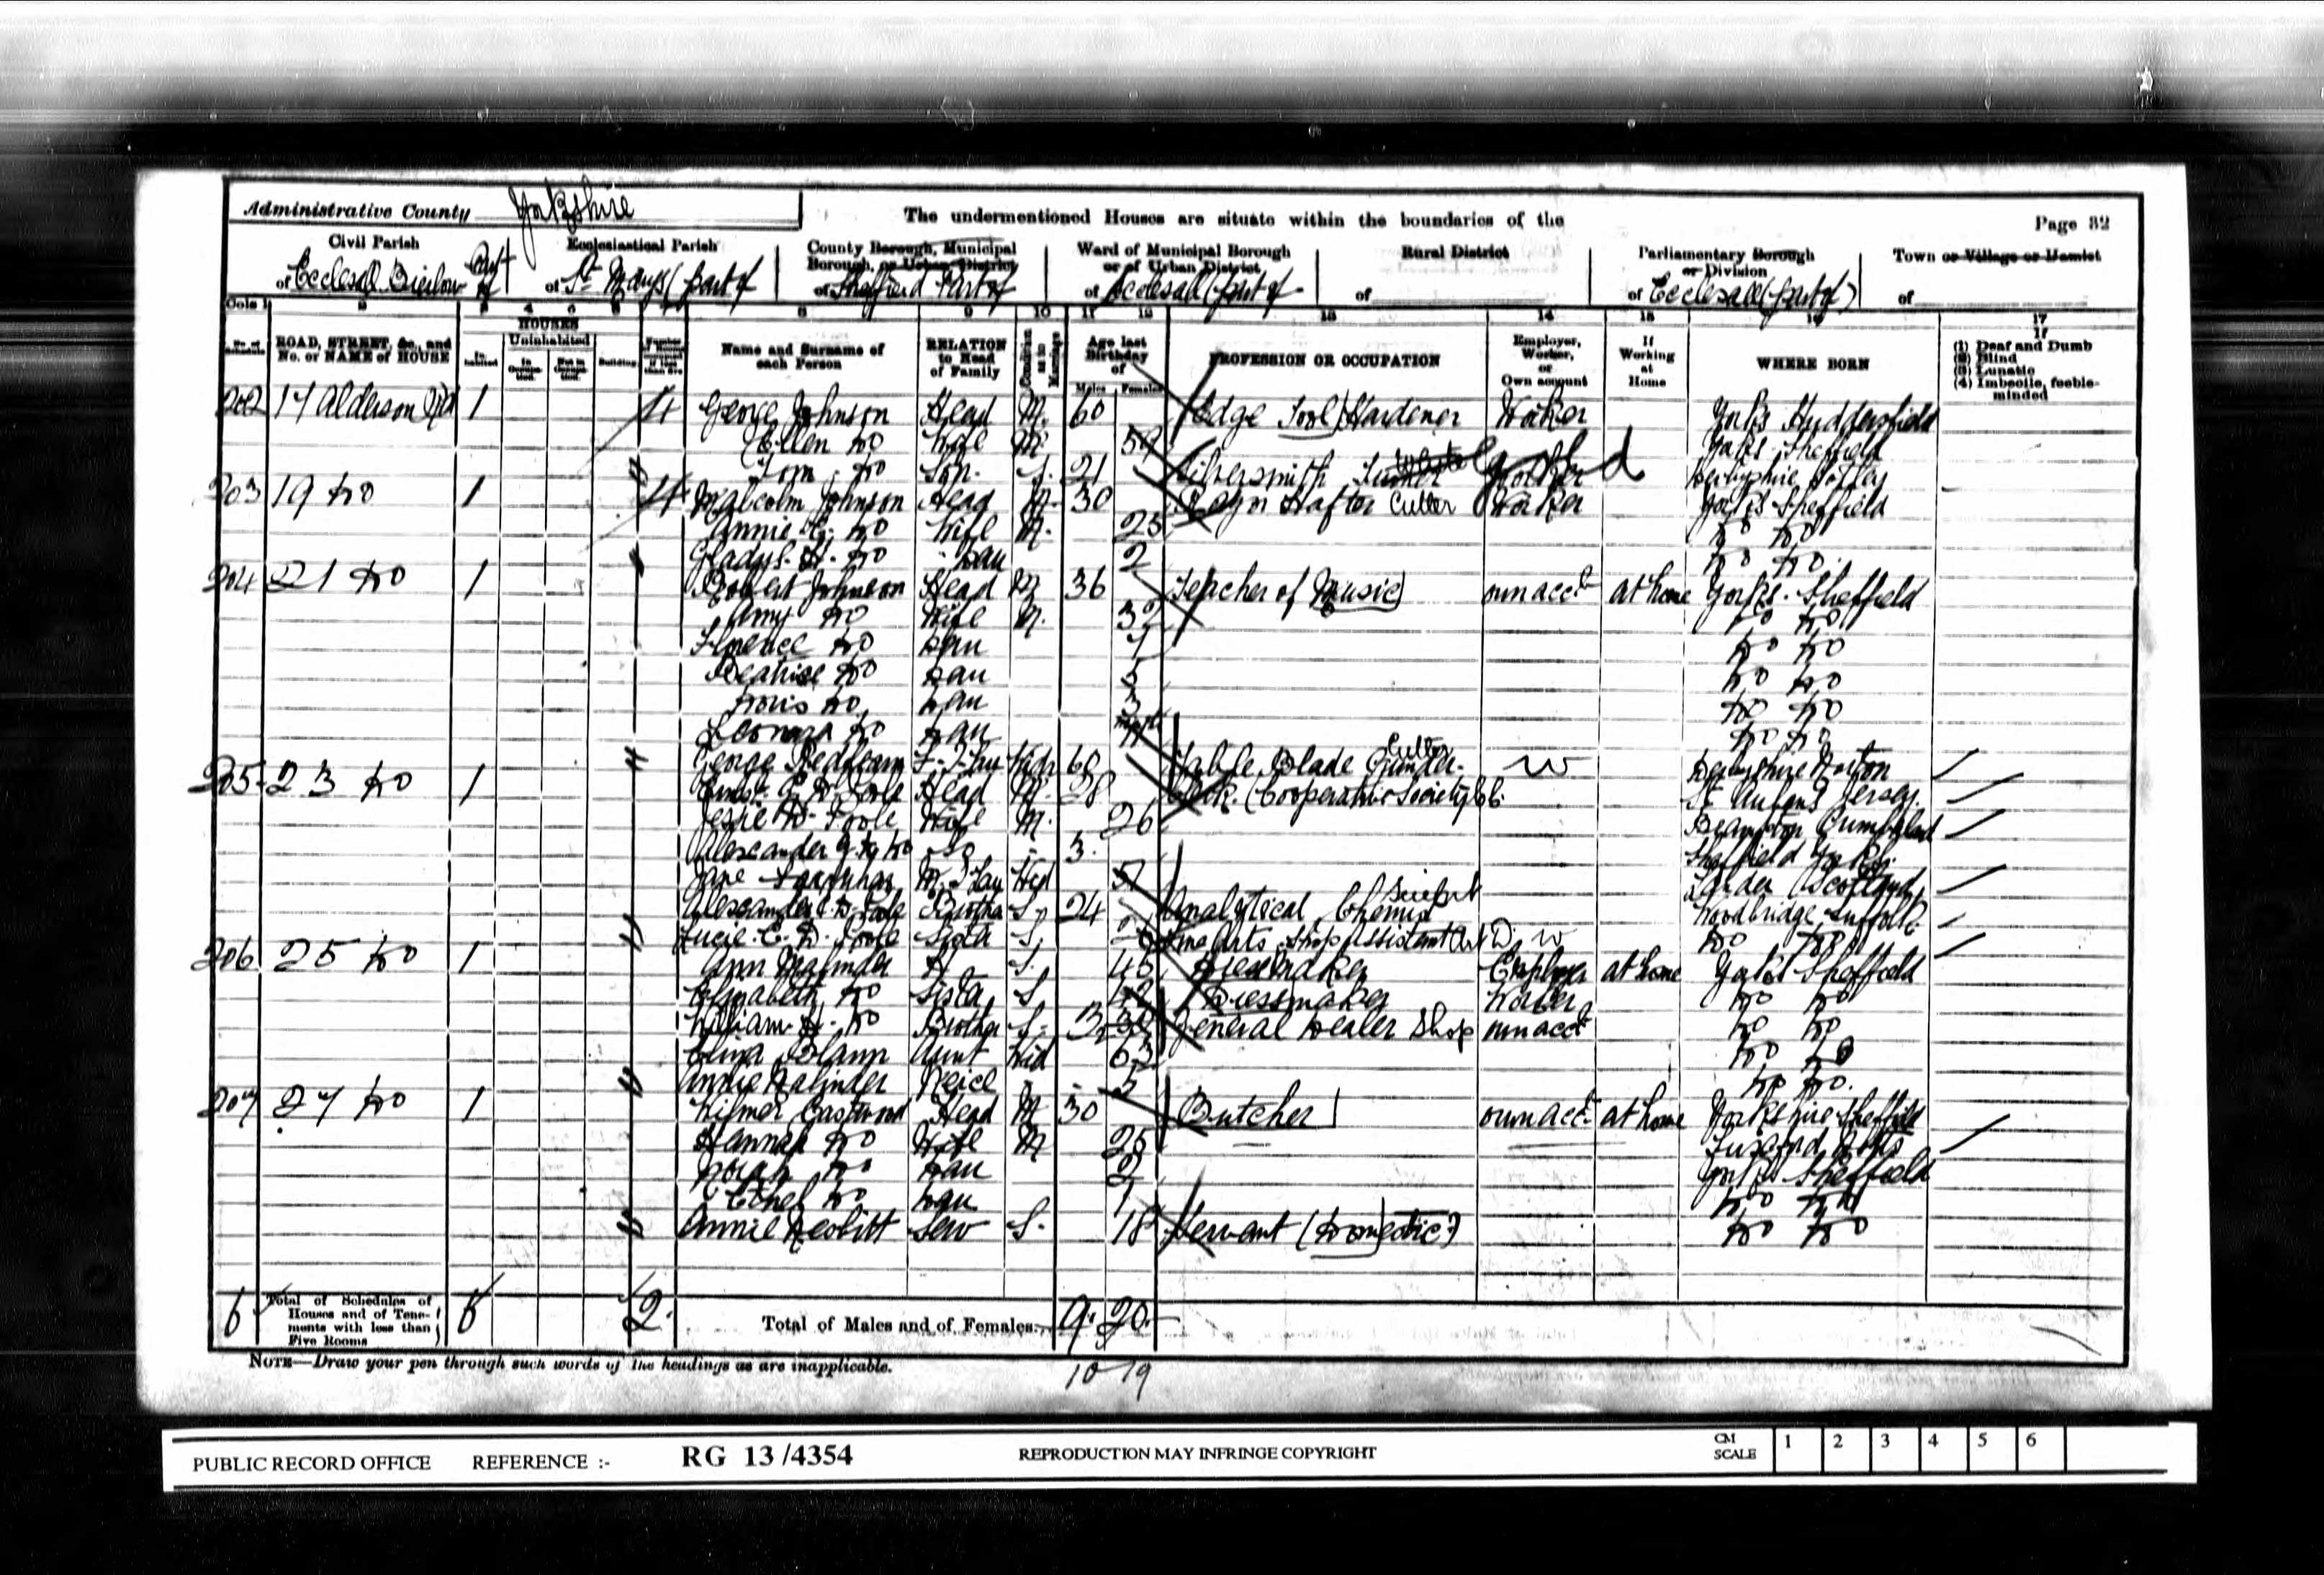 Administrative County Yorkshire
The undermentioned Houses are situate within the boundaries of the
Page 32
Civil Parish
of Ecclesall Bierlow Part of
Ecclesiastical Parish
of St Marys (part of
County Borough, Municipal Borough, or Urban District
of Sheffield Part of
Ward of Municipal Borough or of Urban District
of Ecclesall (part of
Rural District
of
Parliamentary Borough or Division
of Ecclesall (part of)
Town or Village or Hamlet
of
Cols 1 2 3 4 5 6 7 8 9 10 11 12 13 14 15 16 17
No. of Schedule
ROAD, STREET, &c., and No. or NAME of HOUSE
HOUSES
Inhabited
Uninhabited
In Occupation.
Not in Occupation.
Building
Name and Surname of each Person
RELATION to Head of Family
Condition as to Marriage
Age last Birthday of
Males Females
PROFESSION OR OCCUPATION
Employer, Worker, or Own account
If Working at Home
WHERE BORN
If
(1) Deaf and Dumb
(2) Blind
(3) Lunatic
(4) Imbecile, feeble-minded
202 17 Alderson Rd 1 4 George Johnson Head M. 60 Edge Tool Hardener Worker Yorks Huddersfield
Ellen Do Wife M. Yorks Sheffield
Tom Do Son. S. 21 Silversmith Worker Derbyshire
203 19 Do 1 4 Malcolm Johnson Head M. 30 Hafter Cutler Worker Yorks Sheffield
Annie Do Wife M. 25 Do Do
Gladys Do Dau 2 Do Do.
204 21 Do 1 Robert Johnson Head M 36 Teacher of Music own acct at home Yorks. Sheffield
Amy Do Wife M. 32 Do Do
Florence Do Dau 7 Do Do
Beatrice Do Dau 5 Do Do
Doris Do Dau 3 Do Do
Leonora Do Dau Do Do
George F-I-Law Widr Table Blade Grinder. Cutler W Derbyshire Norton
205 23 Do 1 Ernest Poole Head M. 28 Clerk. (Cooperative Society St Aubens Jersey.
Jessie Poole Wife M. 26 Brampton Cumberland
Alexander Do So - 3. Sheffield Yorks.
Jane M-I-Law Wid Lauder (Scotland)
Alexander Poole Brother S. 24 Analytical Chemist Woodbridge Suffolk
Lucie. C. D. Poole Sister S. Fine Arts Shop Assistant W Do Do
206 25 Do 1 Ann Malinder H S. 45 Dressmaker Employer at home Yorks Sheffield
Elizabeth Do Sister S 42 Dressmaker Worker Do Do
William H. Do Brother S. General Dealer Shop own acct Do Do
Eliza Aunt Wid 63 Do Do
Annie Malinder Neice - - 5 Do Do.
207 27 Do 1 Wilmer Eastwood Head M 30 Butcher own acct at home Yorkshire Sheffield
Hannah Do Wife M 25 Tuxford Notts
Norah Do Dau 2 Yorks Sheffield
Ethel Do Dau 1 Do Do
Annie Nesbitt Serv S. 18 Servant (Domestic) Do Do
6 Total of Schedules of Houses and of Tenements with less than Five Rooms 6 2. Total of Males and of Females... 9. 20.
NOTE—Draw your pen through such words of the headings as are inapplicable.
10 19
PUBLIC RECORD OFFICE REFERENCE :- RG 13/4354 REPRODUCTION MAY INFRINGE COPYRIGHT CM SCALE 1 2 3 4 5 6